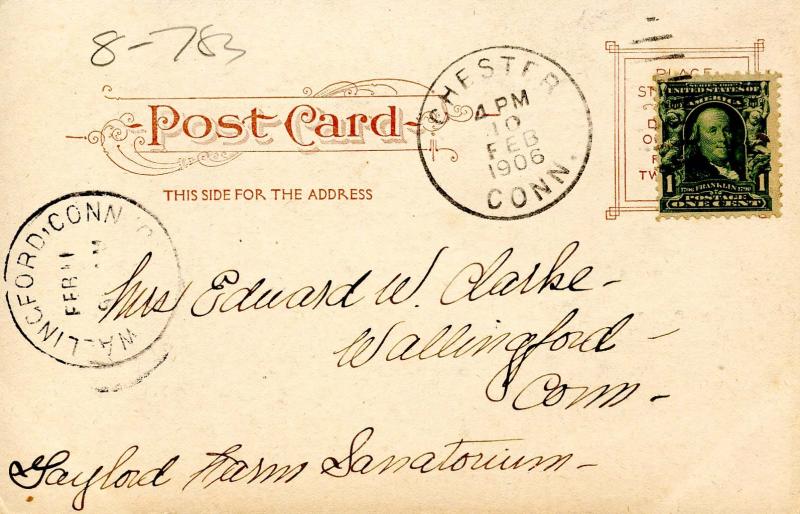 8-783
Post Card
THIS SIDE FOR THE ADDRESS
CHESTER
4 PM
10
FEB
1906
CONN.
PLACE
ST
D
O
F
TW
SERIES 1902
UNITED STATES OF
AMERICA
1 1706 FRANKLIN 1790 1
POSTAGE
ONE CENT
WALLINGFORD, CONN.
FEB 11
M
Mrs Edward W. Clarke-
Wallingford-
Conn-
Gaylord Farm Sanatorium-